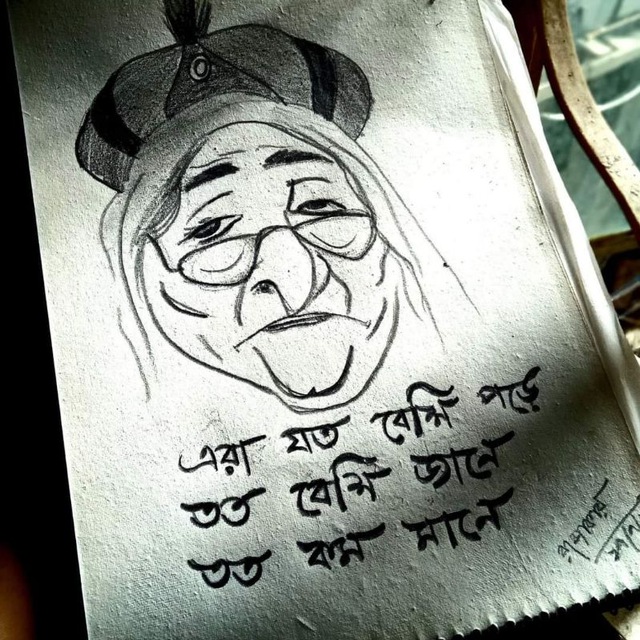 এরা যত বেশি পড়ে
তত বেশি জানে
তত কম মানে